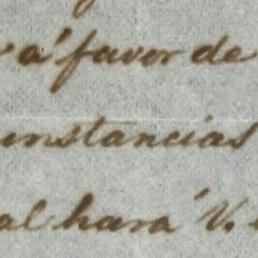 á favor de
unstancias
al hará V.